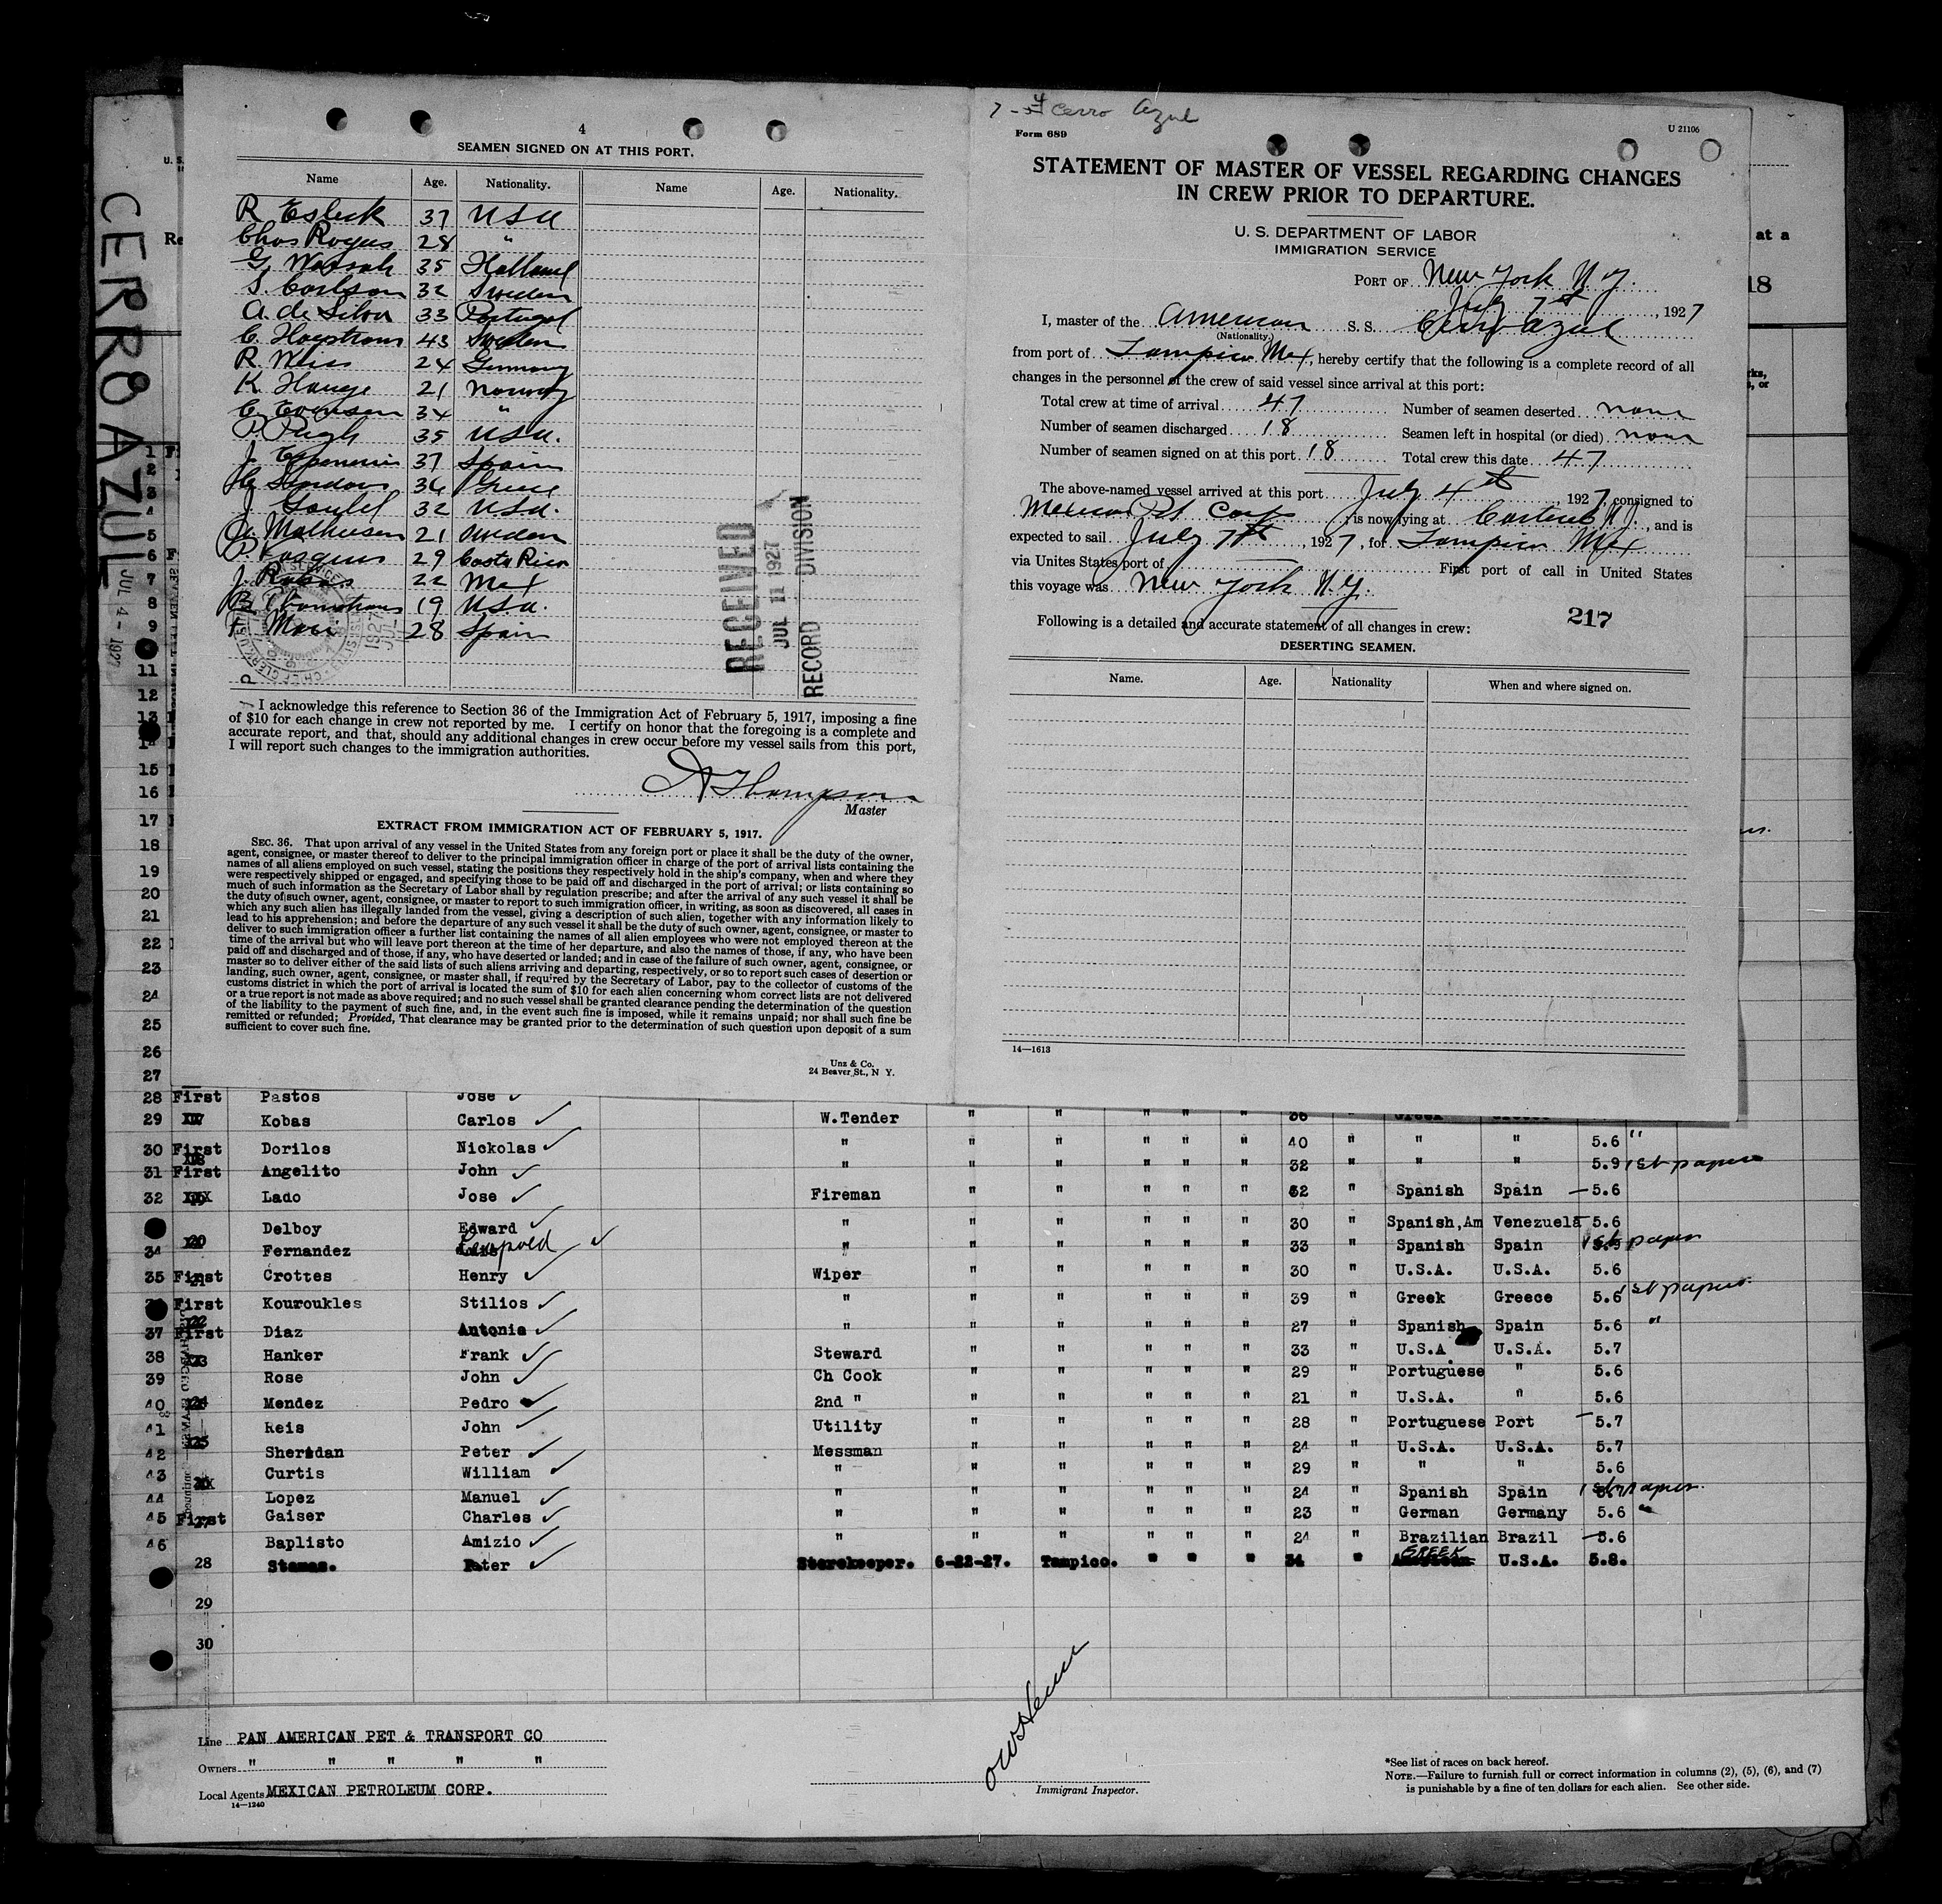 CERRO AZUL
JUL 4 - 1927
4
SEAMEN SIGNED ON AT THIS PORT.
Name Age. Nationality. Name Age. Nationality.
R. Esleck 37 USA
Chas Rogus 28 "
G. 35 Holland
S. Carlson 32 Sweden
A. de Silva 33 Portugal
C. Hagstrom 43 Sweden
R. Weiss 24 Germany
K. Hauge 21 Norway
C. Evensen 34 "
P. Pugh 35 USA.
J. 37 Spain
36 Greece
J. 32 USA.
A. Mathiesen 21 Sweden
P. Vasques 29 Costa Rica
J. 22 Mex
B. 19 USA.
F. 28 Spain
RECEIVED
JUL 11 1927
RECORD DIVISION
I acknowledge this reference to Section 36 of the Immigration Act of February 5, 1917, imposing a fine
of $10 for each change in crew not reported by me. I certify on honor that the foregoing is a complete and
accurate report, and that, should any additional changes in crew occur before my vessel sails from this port,
I will report such changes to the immigration authorities.
A Thompson
Master
EXTRACT FROM IMMIGRATION ACT OF FEBRUARY 5, 1917.
SEC. 36. That upon arrival of any vessel in the United States from any foreign port or place it shall be the duty of the owner,
agent, consignee, or master thereof to deliver to the principal immigration officer in charge of the port of arrival lists containing the
names of all aliens employed on such vessel, stating the positions they respectively hold in the ship's company, when and where they
were respectively shipped or engaged, and specifying those to be paid off and discharged in the port of arrival; or lists containing so
much of such information as the Secretary of Labor shall by regulation prescribe; and after the arrival of any such vessel it shall be
the duty of such owner, agent, consignee, or master to report to such immigration officer, in writing, as soon as discovered, all cases in
which any such alien has illegally landed from the vessel, giving a description of such alien, together with any information likely to
lead to his apprehension; and before the departure of any such vessel it shall be the duty of such owner, agent, consignee, or master to
deliver to such immigration officer a further list containing the names of all alien employees who were not employed thereon at the
time of the arrival but who will leave port thereon at the time of her departure, and also the names of those, if any, who have been
paid off and discharged and of those, if any, who have deserted or landed; and in case of the failure of such owner, agent, consignee, or
master so to deliver either of the said lists of such aliens arriving and departing, respectively, or so to report such cases of desertion or
landing, such owner, agent, consignee, or master shall, if required by the Secretary of Labor, pay to the collector of customs of the
customs district in which the port of arrival is located the sum of $10 for each alien concerning whom correct lists are not delivered
or a true report is not made as above required; and no such vessel shall be granted clearance pending the determination of the question
of the liability to the payment of such fine, and, in the event such fine is imposed, while it remains unpaid; nor shall such fine be
remitted or refunded; Provided, That clearance may be granted prior to the determination of such question upon deposit of a sum
sufficient to cover such fine.
Unz & Co.
24 Beaver St., N Y.
Cerro Azul
Form 689
U 21106
STATEMENT OF MASTER OF VESSEL REGARDING CHANGES
IN CREW PRIOR TO DEPARTURE.
U. S. DEPARTMENT OF LABOR
IMMIGRATION SERVICE
PORT OF New York N.Y.
July 7th, 1927
I, master of the American S. S. Cerro Azul
(Nationality.)
from port of Tampico Mex, hereby certify that the following is a complete record of all
changes in the personnel of the crew of said vessel since arrival at this port:
Total crew at time of arrival 47 Number of seamen deserted none
Number of seamen discharged 18 Seamen left in hospital (or died) none
Number of seamen signed on at this port 18 Total crew this date 47
The above-named vessel arrived at this port July 4th, 1927, consigned to
Mexican Pet Corp, is now lying at Carteret N J., and is
expected to sail July 7th, 1927, for Tampico Mex
via Unites States port of — First port of call in United States
this voyage was New York N.Y.
Following is a detailed and accurate statement of all changes in crew:
217
DESERTING SEAMEN.
Name. Age. Nationality When and where signed on.
14—1613
at a
18
1
2
3
4
5
6
7
8
9
11
12
13
14
15
16
17
18
19
20
21
22
23
24
25
26
27
28 First Pastos Jose
29 Kobas Carlos W.Tender " " " " " 36 " Greek Greece
30 First Dorilos Nickolas " " " " " " 40 " " " 5.6 "
31 First Angelito John " " " " " " 32 " " " 5.9 1st papers
32 Lado Jose Fireman " " " " " 52 " Spanish Spain 5.6
Delboy Edward " " " " " " 30 " Spanish,Am Venezuela 5.6
34 20 Fernandez Leopold " " " " " " 33 " Spanish Spain 1st paper
35 First Crottes Henry Wiper " " " " " 30 " U.S.A. U.S.A. 5.6
First Kouroukles Stilios " " " " " " 39 " Greek Greece 5.6 1st papers
37 First Diaz Antonio " " " " " " 27 " Spanish Spain 5.6 "
38 23 Hanker Frank Steward " " " " " 33 " U.S.A U.S.A. 5.7
39 Rose John Ch Cook " " " " " 29 " Portuguese " 5.6
40 24 Mendez Pedro 2nd " " " " " " 21 " U.S.A. " 5.6
41 Reis John Utility " " " " " 28 " Portuguese Port 5.7
42 25 Sheridan Peter Messman " " " " " 24 " U.S.A. U.S.A. 5.7
43 Curtis William " " " " " " 29 " " " 5.6
44 Lopez Manuel " " " " " " 24 " Spanish Spain 1st papers.
45 First Gaiser Charles " " " " " " 23 " German Germany 5.6 "
46 Baplisto Amizio " " " " " " 24 " Brazilian Brazil 5.6
28 Stamas. Peter Storekeeper. 6-22-27. Tampico. " " " 34 " GREEK U.S.A. 5.8.
29
30
Line PAN AMERICAN PET & TRANSPORT CO
Owners " " " " "
Local Agents MEXICAN PETROLEUM CORP.
14—1240
Immigrant Inspector.
*See list of races on back hereof.
NOTE.—Failure to furnish full or correct information in columns (2), (5), (6), and (7)
is punishable by a fine of ten dollars for each alien. See other side.